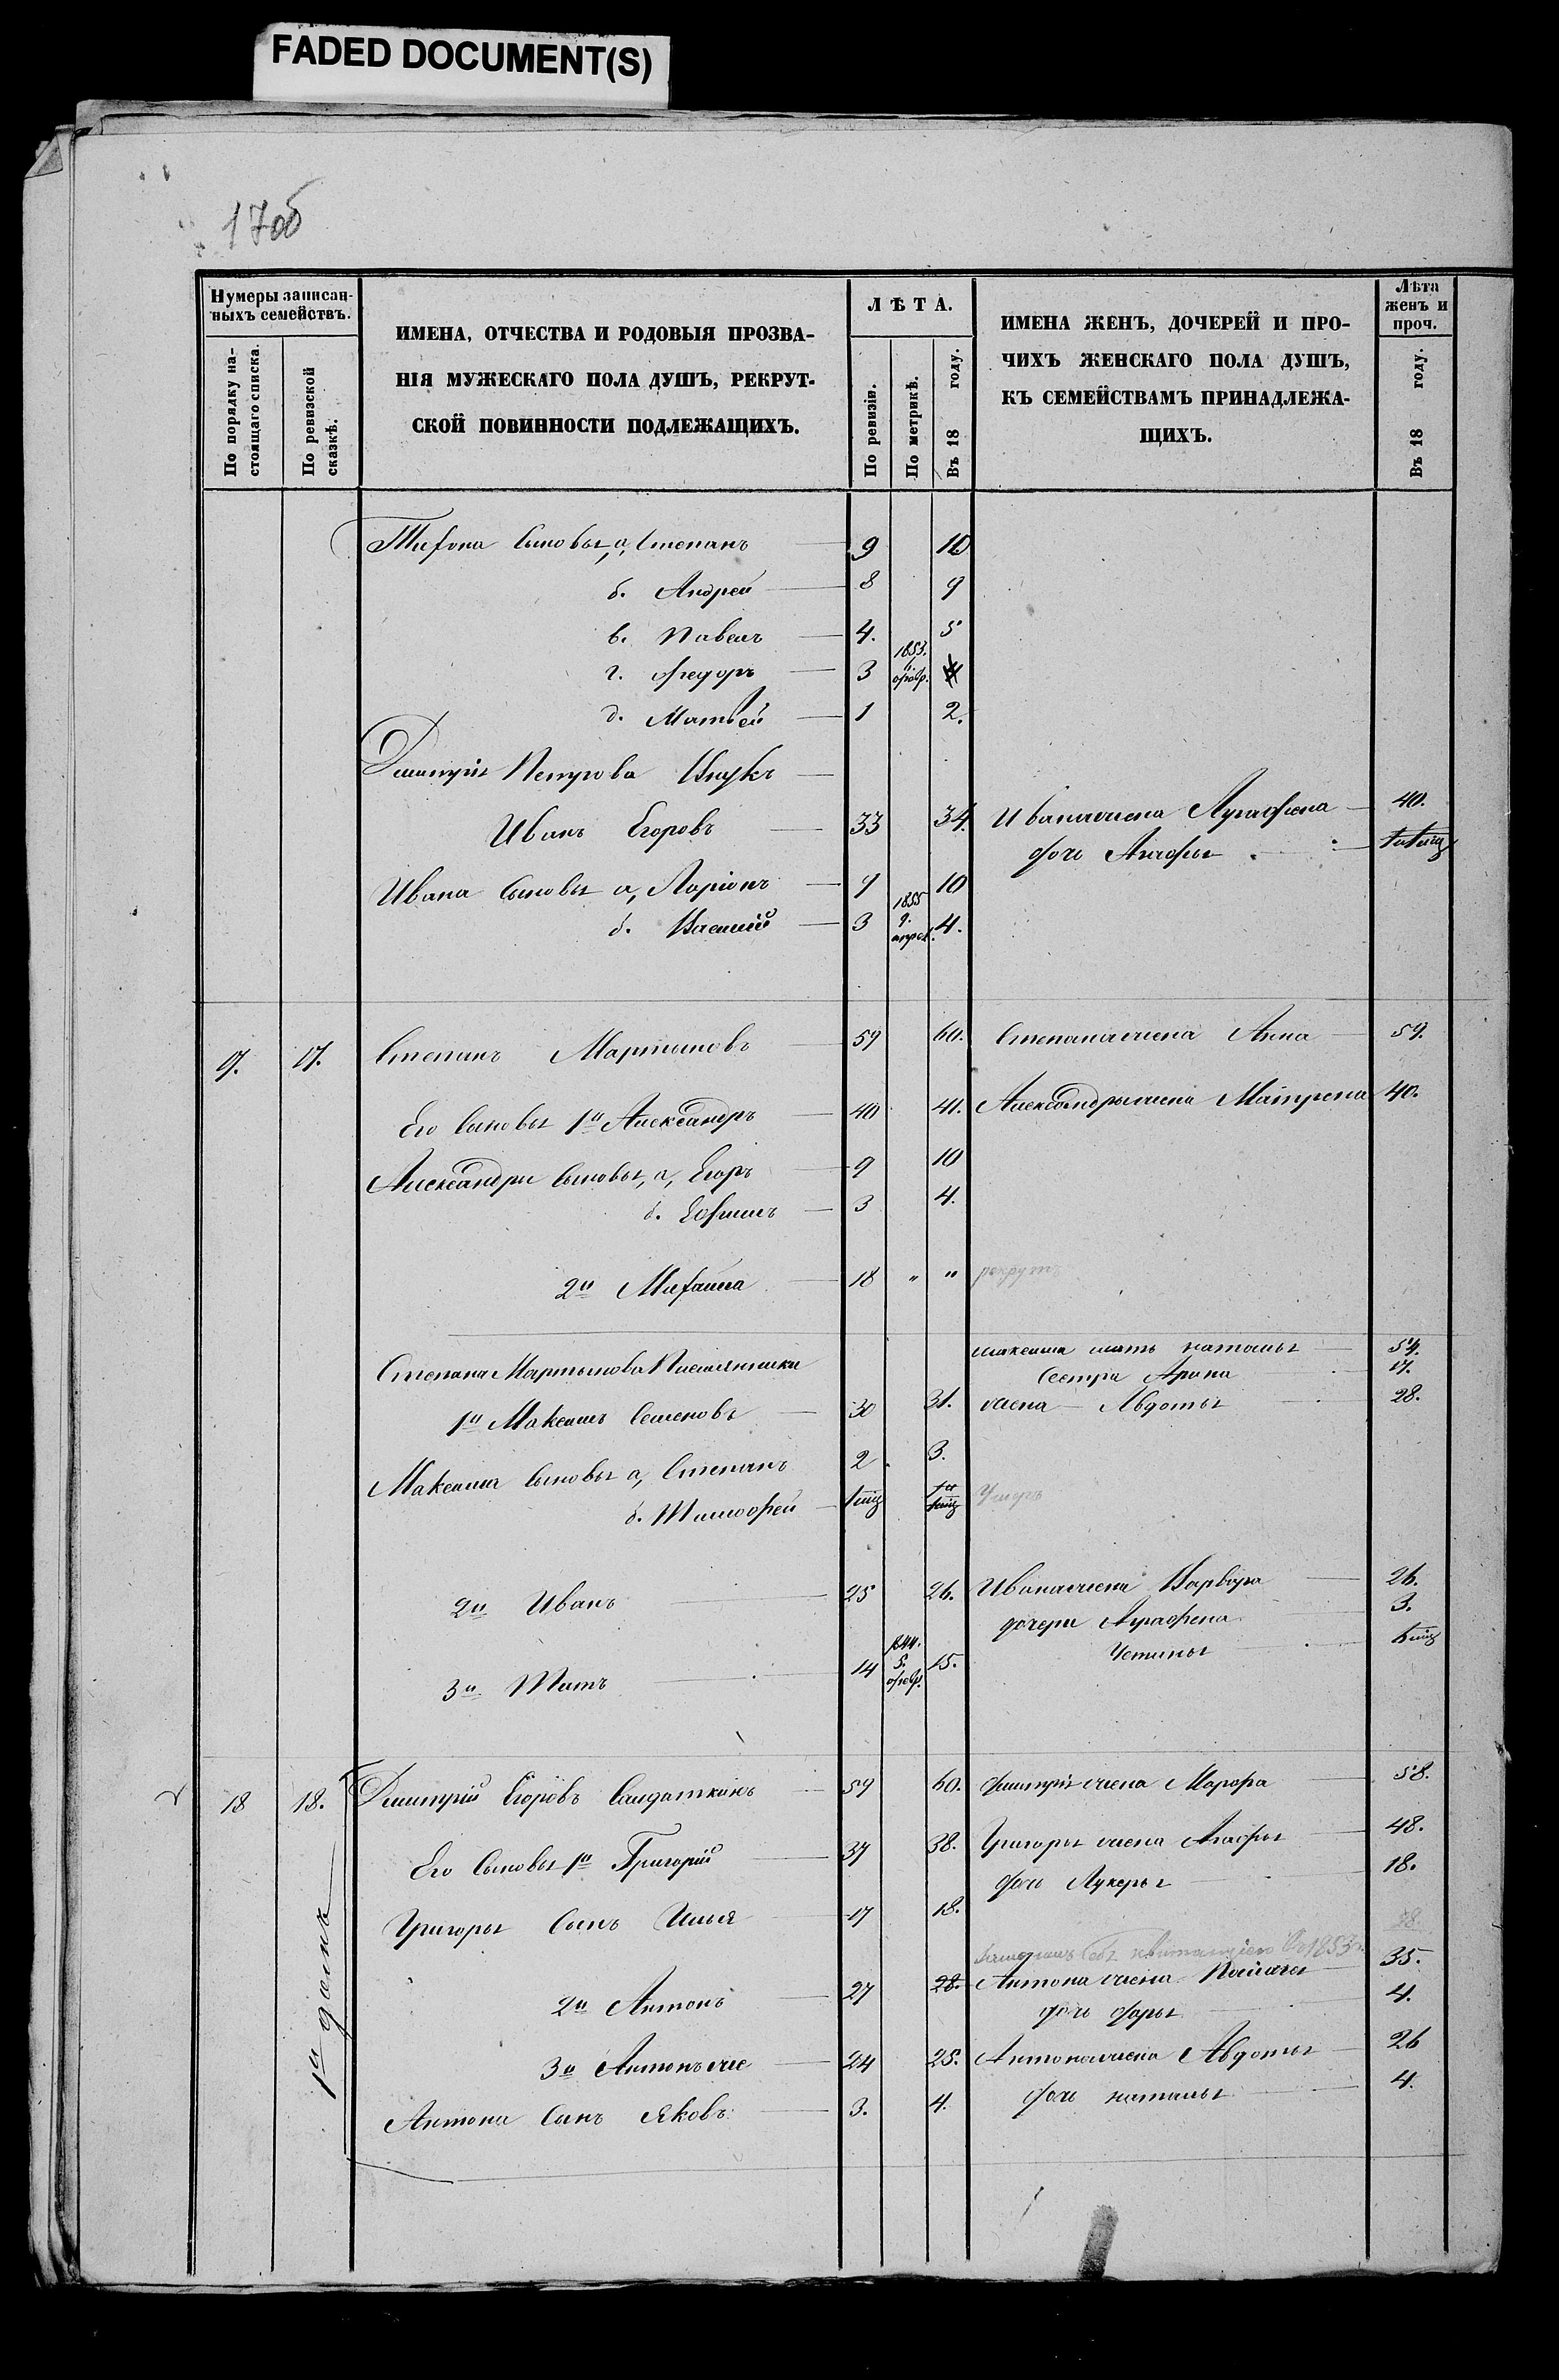 FADED DOCUMENT(S)
17об
Нумеры записан-
ныхъ семействъ.
По порядку на-
стоящаго списка.
По ревизской
сказкѣ.
ИМЕНА, ОТЧЕСТВА И РОДОВЫЯ ПРОЗВА-
НІЯ МУЖЕСКАГО ПОЛА ДУШЪ, РЕКРУТ-
СКОЙ ПОВИННОСТИ ПОДЛЕЖАЩИХЪ.
ЛѢТА.
По ревизіи.
По метрикѣ.
Въ 18 году.
ИМЕНА ЖЕНЪ, ДОЧЕРЕЙ И ПРО-
ЧИХЪ ЖЕНСКАГО ПОЛА ДУШЪ,
КЪ СЕМЕЙСТВАМЪ ПРИНАДЛЕЖА-
ЩИХЪ.
Лѣта
женъ и
проч.
Въ 18 году.
Тихона Сыновья, а, Степанъ 9 10
б. Андрей 8 9
в. Павелъ 4. 5
г. Федоръ 3 1853. февр.
д. Матвей 1 2.
Дмитрія Петрова Внукъ
Иванъ Егоровъ 33 34. Ивана жена Аграфена 40.
дочь
Ивана Сыновья а, Ларіонъ 9 10
б. Василій 3 1855 9. апрел. 4.
17. Степанъ Мартыновъ 59 60. Степана жена Анна 59.
Его Сыновья 1й Александръ 40 41. Александры жена Матрена 40.
Александры Сыновья, а, Егоръ 9 10
б. Ефимъ 3 4.
2й Михаила 18 " " рекрутъ
Степана Мартынова Племянники
Максима мать Наталья 54.
Сестра Арина 17.
1й Максимъ Семеновъ 30 31. жена Авдотья 28.
Максима Сыновья а, Степанъ 2 3.
б. Тимофей Умеръ
2й Иванъ 25 26. Ивана жена Варвара 26.
дочери Аграфена 3.
Устинья
3й Титъ 14 1844. 5. февр. 15.
18 18. Дмитрий Егоровъ Солдаткинъ 59 60. Дмитрія жена Марфа 58.
Его Сыновья 1й Григорій 37 38. Григорья жена Агафья 48.
дочь Лукерья 18.
Григорья Сынъ Илья 17 18.
квитанціею 1853
2й Антонъ 27 28. Антона жена 35.
дочь Дарья 4.
3й Антонъ же 24 25. Антона жена Авдотья 26
Антона Сынъ Яковъ 3. 4. дочь Наталья 4.